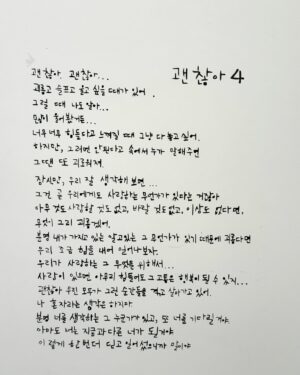 괜찮아 4
괜찮아. 괜찮아...
괴롭고 슬프고 울고 싶을 때가 있어.
그럴 때 나도 알아...
많이 울어봤거든...
너무 너무 힘들다고 느껴질 때 그냥 다 놓고 싶어.
하지만, 그러면 안된다고 속에서 누가 말해주면
그땐 또 괴로워져.
잠시만, 우리 잘 생각해 보면...
그건 곧 우리에게도 사랑하는 무언가가 있다는 거잖아
아무 것도 사랑할 것도 없고, 바랄 것도 없고, 이상도 없다면.
무엇이 그리 괴롭겠어.
분명 내가 가지고 있는 알고있는 그 무언가가 있기 때문에 괴롭다면
우리 조금 힘을 내어 일어나보자.
우리가 사랑하는 그 무엇을 위해서...
사랑이 있으면 아무리 힘들어도 그 고통은 행복이 될 수 있지...
괜찮아 우린 모두가 그런 순간들을 겪고 살아가고 있어.
나 혼자라는 생각은 하지마
분명 너를 생각하는 그 누군가가 있고, 또 너를 기다릴거야
아마도 너는 지금과 다른 너가 될거야
이렇게 한번더 딛고 일어섰으니까 말이야